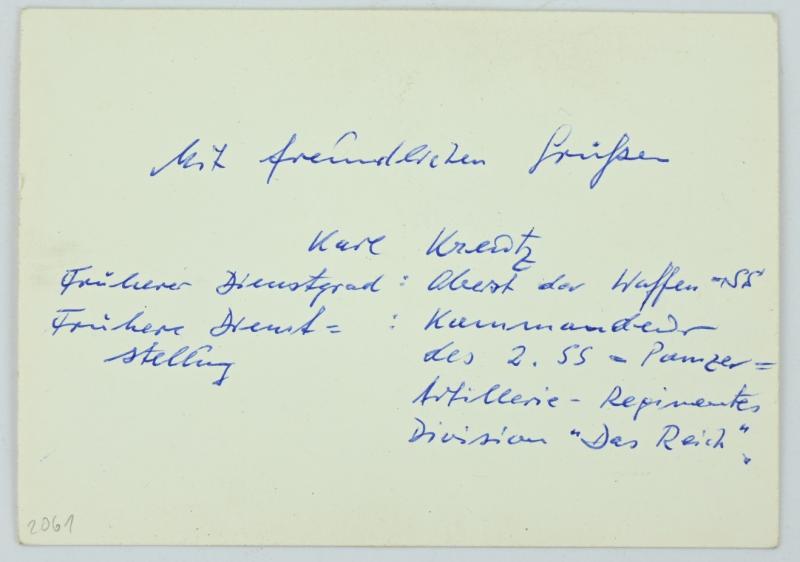 Mit freundlichen Grüßen
Karl Kreutz
Früherer Dienstgrad : Oberst der Waffen-SS
Frühere Dienst= : Kommandeur
stellung des 2. SS-Panzer=
Artillerie-Regimentes
Division "Das Reich".
2061